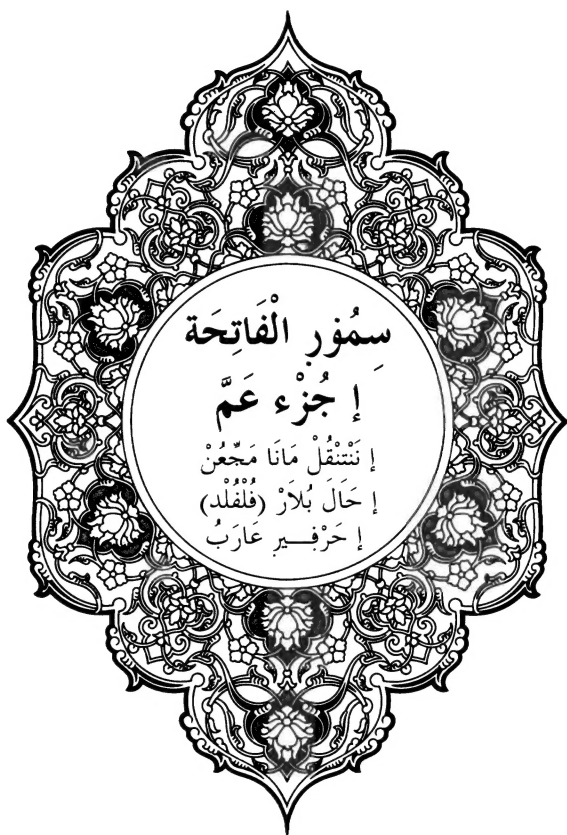 سِمُوٰرِ الْفَاتِحَة
إ جُزْء عَمَّ
إ نَنْتِنْقُلْ مَانَا مَجِّعُنْ
إ حَالَ بُلَارْ (فُلْفُلْد)
إ حَرْفِيرِ عَارَبُ